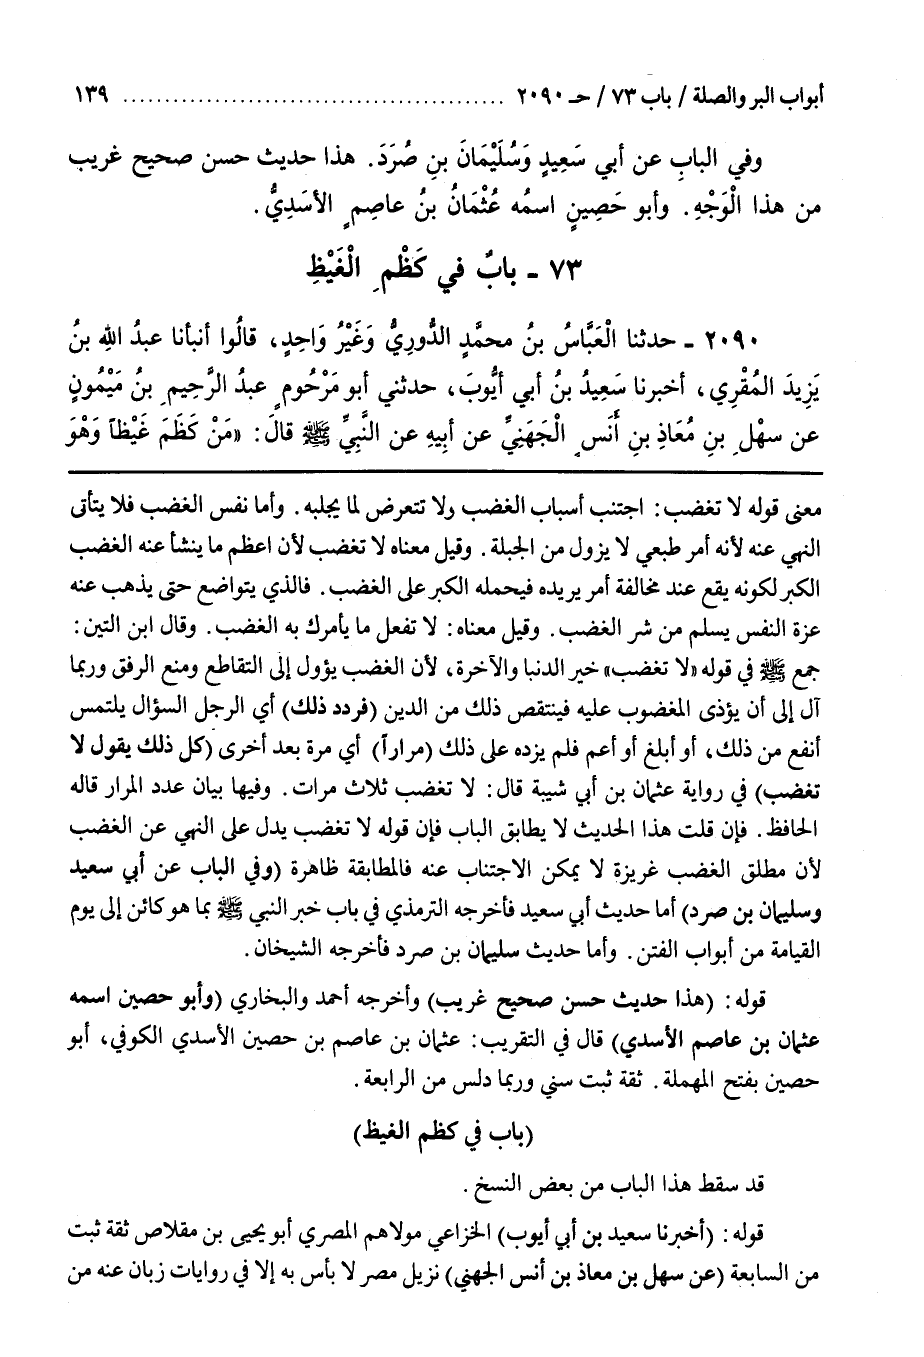 أبواب البر والصلة / باب ٧٣ / حـ ٢٠٩٠ ............................................... ١٣٩
وفي البابِ عن أبي سَعِيدٍ وَسُلَيْمَانَ بنِ صُرَدَ. هذا حديث حسن صحيح غريب
من هذا الْوَجْهِ. وأبو حَصِينٍ اسمُه عُثْمَانُ بنُ عاصِمٍ الأسَدِيُّ.
٧٣ - بابٌ في كَظْمِ الْغَيْظِ
٢٠٩٠ - حدثنا الْعَبَّاسُ بنُ محمَّدٍ الدُّورِيُّ وَغَيْرُ وَاحِدٍ، قالُوا أنبأنا عبدُ اللهِ بنُ
يَزِيدَ المُقْرِي، أخبرنا سَعِيدُ بنُ أبي أيُّوبَ، حدثني أبو مَرْحُومٍ عبدُ الرَّحِيمِ بنُ مَيْمُونٍ
عن سهْلِ بنِ مُعَاذِ بنِ أَنَسٍ الْجَهَنِيِّ عن أبيهِ عن النَّبيِّ ﷺ قالَ: «مَنْ كَظَمَ غَيْظاً وَهُوَ
معنى قوله لا تغضب: اجتنب أسباب الغضب ولا تتعرض لما يجلبه. وأما نفس الغضب فلا يتأتى
النهي عنه لأنه أمر طبعي لا يزول من الجبلة. وقيل معناه لا تغضب لأن اعظم ما ينشأ عنه الغضب
الكبر لكونه يقع عند مخالفة أمر يريده فيحمله الكبر على الغضب. فالذي يتواضع حتى يذهب عنه
عزة النفس يسلم من شر الغضب. وقيل معناه: لا تفعل ما يأمرك به الغضب. وقال ابن التين:
جمع ﷺ في قوله «لا تغضب» خير الدنبا والآخرة، لأن الغضب يؤول إلى التقاطع ومنع الرفق وربما
آل إلى أن يؤذى المغضوب عليه فينتقص ذلك من الدين (فردد ذلك) أي الرجل السؤال يلتمس
أنفع من ذلك، أو أبلغ أو أعم فلم يزده على ذلك (مراراً) أي مرة بعد أخرى (كل ذلك يقول لا
تغضب) في رواية عثمان بن أبي شيبة قال: لا تغضب ثلاث مرات. وفيها بيان عدد المرار قاله
الحافظ. فإن قلت هذا الحديث لا يطابق الباب فإن قوله لا تغضب يدل على النهي عن الغضب
لأن مطلق الغضب غريزة لا يمكن الاجتناب عنه فالمطابقة ظاهرة (وفي الباب عن أبي سعيد
وسليمان بن صرد) أما حديث أبي سعيد فأخرجه الترمذي في باب خبر النبي ﷺ بما هو كائن إلى يوم
القيامة من أبواب الفتن. وأما حديث سليمان بن صرد فأخرجه الشيخان.
قوله: (هذا حديث حسن صحيح غريب) وأخرجه أحمد والبخاري (وأبو حصين اسمه
عثمان بن عاصم الأسدي) قال في التقريب: عثمان بن عاصم بن حصين الأسدي الكوفي، أبو
حصين بفتح المهملة. ثقة ثبت سني وربما دلس من الرابعة.
(باب في كظم الغيظ)
قد سقط هذا الباب من بعض النسخ.
قوله: (أخبرنا سعيد بن أبي أيوب) الخزاعي مولاهم المصري أبو يحيى بن مقلاص ثقة ثبت
من السابعة (عن سهل بن معاذ بن أنس الجهني) نزيل مصر لا بأس به إلا في روايات زبان عنه من